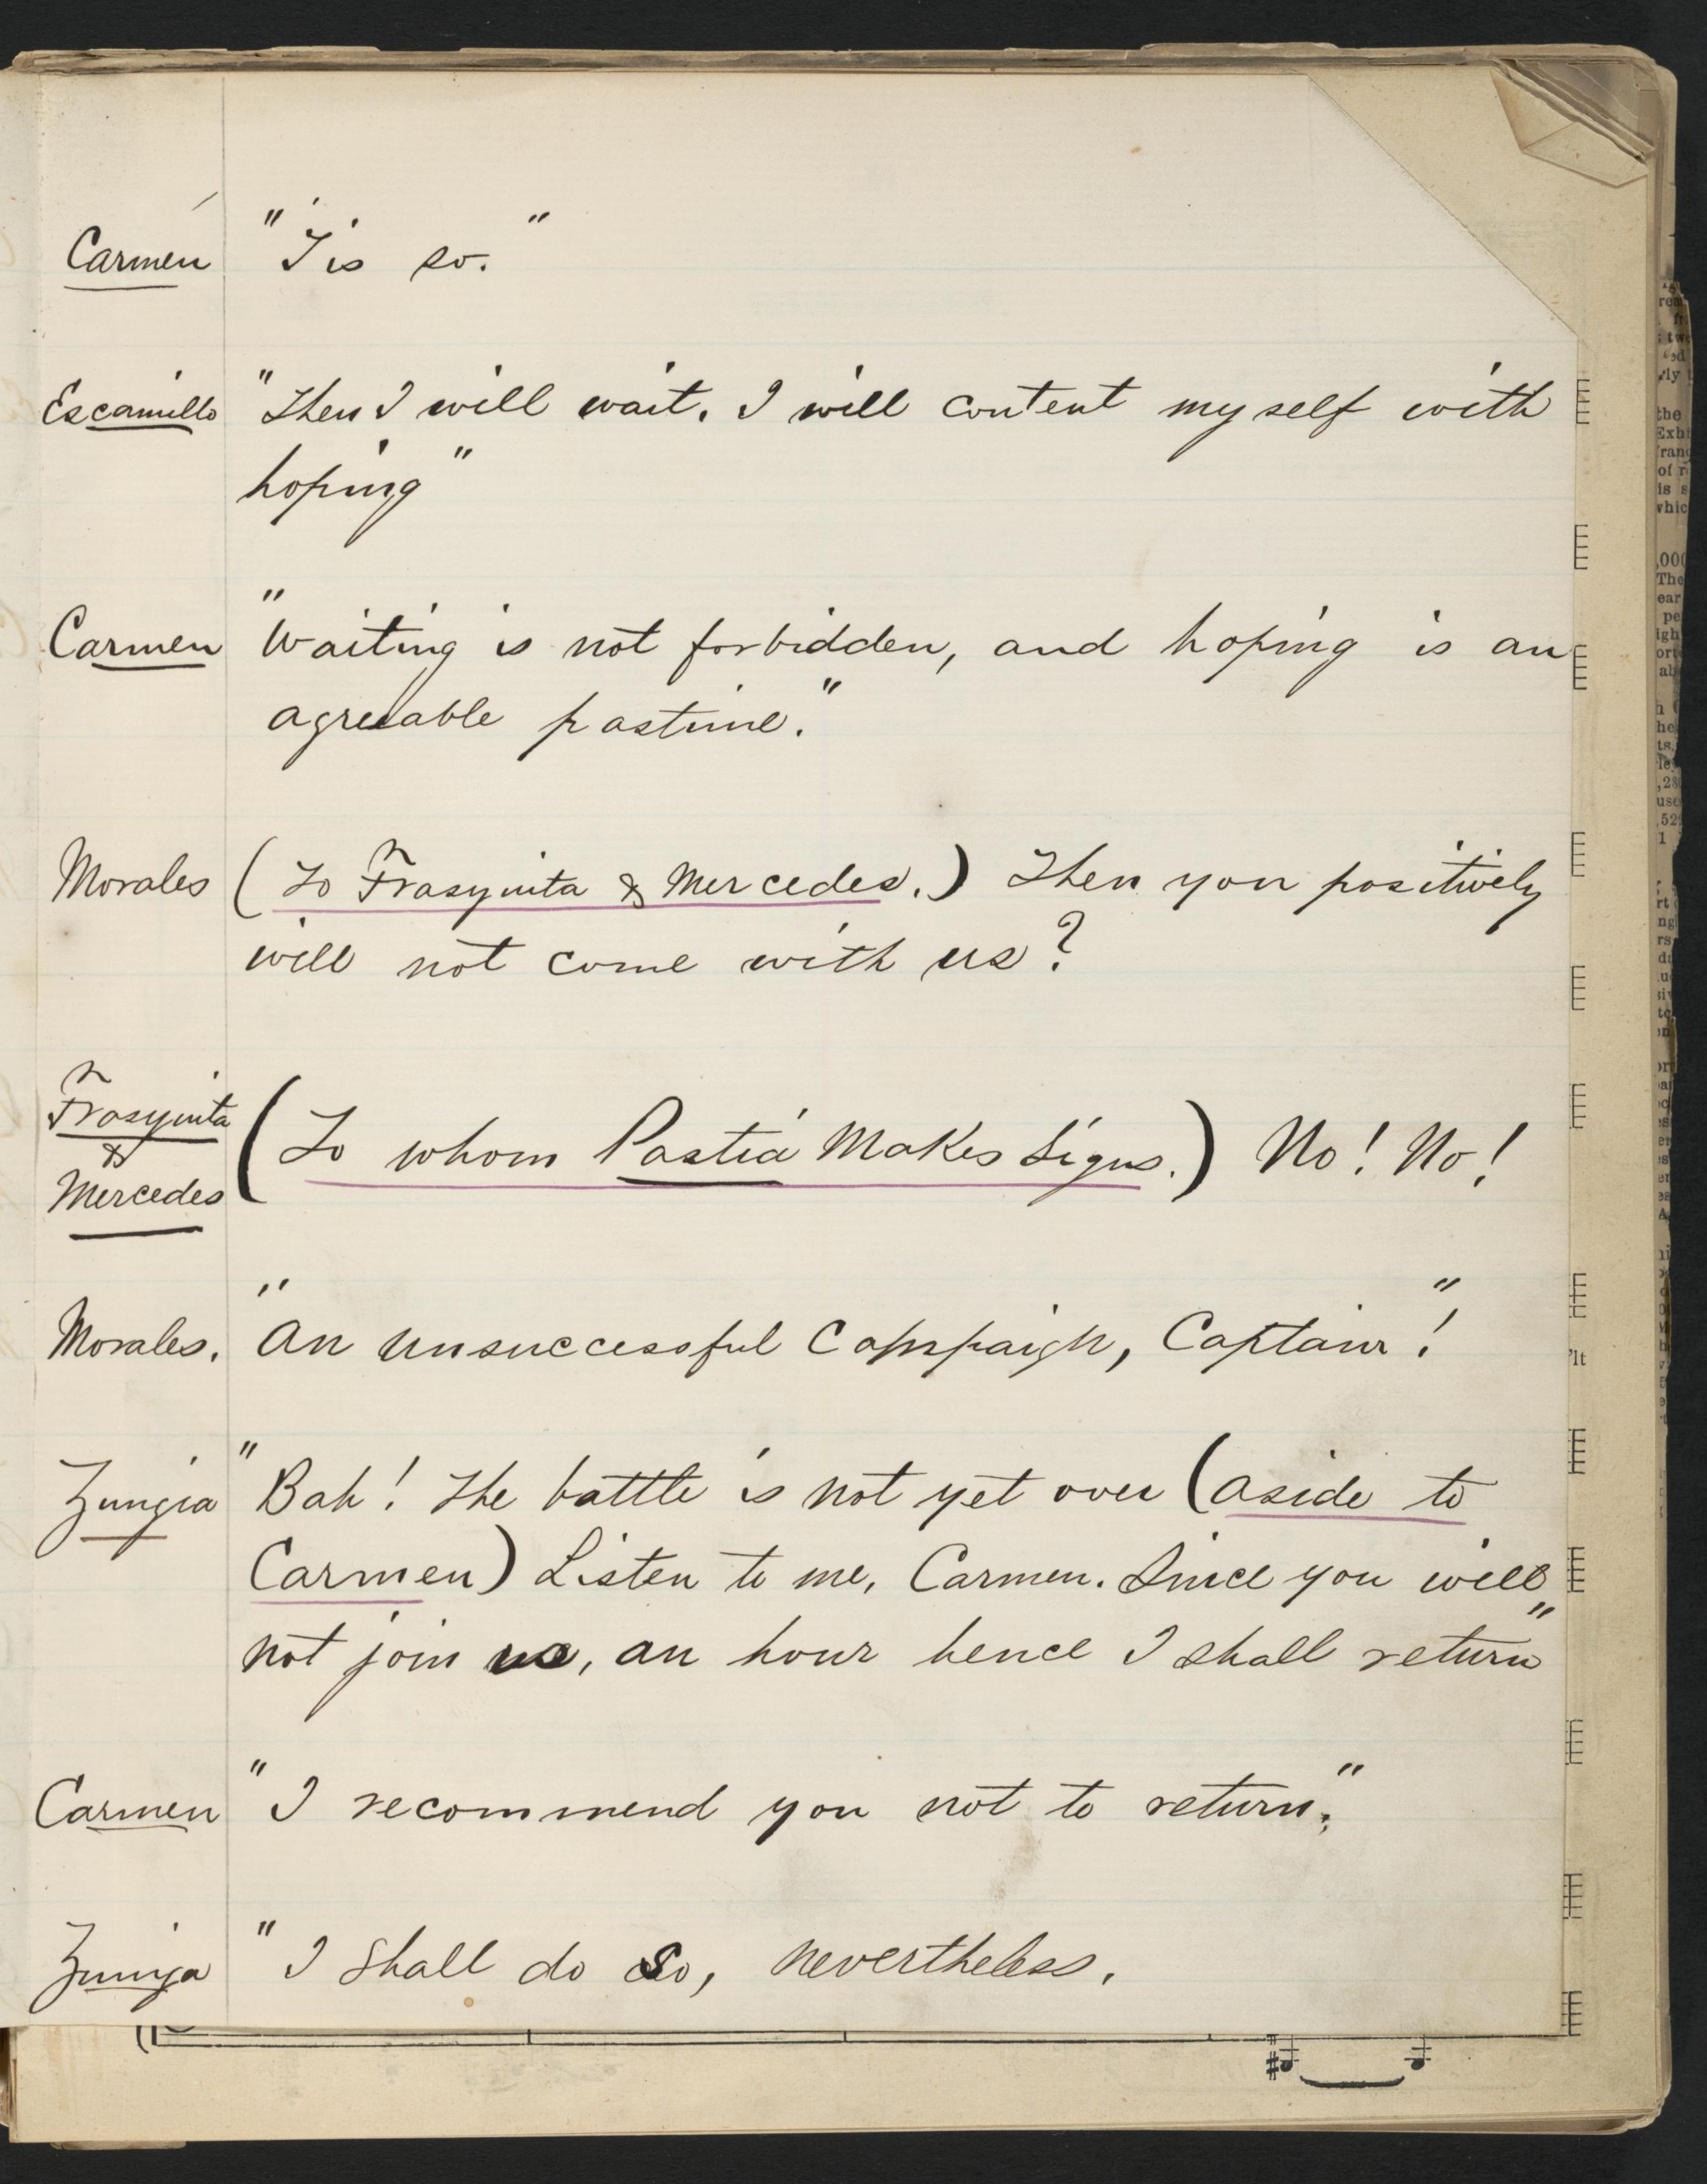 Carmen "'Tis so."
Escamillo "Then I will wait. I will content myself with
hoping"
Carmen "Waiting is not forbidden, and hoping is an
agreeable pastime."
Morales (To Frasquita & Mercedes.) Then you positively
will not come with us?
Frasquita
&
Mercedes
(To whom Pastia Makes Signs.) No! No!
Morales. "An unsuccessful Campaign, Captain!"
Zungia "Bah! The battle is not yet over (aside to
Carmen) Listen to me, Carmen. Since you will
not join us, an hour hence I shall return"
Carmen "I recommend you not to return."
Zuniga "I shall do So, nevertheless.
'lt